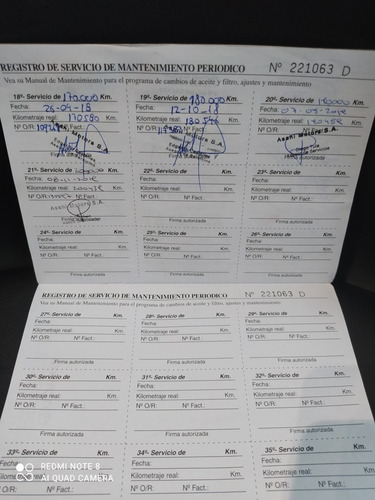 REGISTRO DE SERVICIO DE MANTENIMIENTO PERIODICO Nº 221063 D
Vea su Manual de Mantenimiento para el programa de cambios de aceite y filtro, ajustes y mantenimiento
18º- Servicio de 170000 Km.
Fecha: 26-04-18
Kilometraje real: 170580 Km.
Nº O/R: Nº Fact.:
Motors S.A.
19º- Servicio de 180000 Km.
Fecha: 12-10-18
Kilometraje real: 180546 Km.
Nº O/R: Nº Fact.:
Motors S.A.
20º- Servicio de 190000 Km.
Fecha:
Kilometraje real: Km.
Nº O/R: Nº Fact.:
Asahi Motors S.A.
Firma autorizada
21º- Servicio de Km.
Fecha:
Kilometraje real: Km.
Nº O/R: Nº Fact.
Asahi Motors S.A.
Firma autorizada
22º- Servicio de Km.
Fecha:
Kilometraje real: Km.
Nº O/R: Nº Fact.:
Firma autorizada
23º- Servicio de Km.
Fecha:
Kilometraje real: Km.
Nº O/R: Nº Fact.:
Firma autorizada
24º- Servicio de Km.
Fecha:
Kilometraje real: Km.
Nº O/R: Nº Fact.:
Firma autorizada
25º- Servicio de Km.
Fecha:
Kilometraje real: Km.
Nº O/R: Nº Fact.:
Firma autorizada
26º- Servicio de Km.
Fecha:
Kilometraje real: Km.
Nº O/R: Nº Fact.:
Firma autorizada
REGISTRO DE SERVICIO DE MANTENIMIENTO PERIODICO Nº 221063 D
Vea su Manual de Mantenimiento para el programa de cambios de aceite y filtro, ajustes y mantenimiento
27º- Servicio de Km.
Fecha:
Kilometraje real: Km.
Nº O/R: Nº Fact.:
Firma autorizada
28º- Servicio de Km.
Fecha:
Kilometraje real: Km.
Nº O/R: Nº Fact.:
Firma autorizada
29º- Servicio de Km.
Fecha:
Kilometraje real: Km.
Nº O/R: Nº Fact.:
Firma autorizada
30º- Servicio de Km.
Fecha:
Kilometraje real: Km.
Nº O/R: Nº Fact.:
Firma autorizada
31º- Servicio de Km.
Fecha:
Kilometraje real: Km.
Nº O/R: Nº Fact.:
Firma autorizada
32º- Servicio de Km.
Fecha:
Kilometraje real: Km.
Nº O/R: Nº Fact.:
Firma autorizada
33º- Servicio de Km.
Fecha:
34º- Servicio de Km.
Fecha:
Kilometraje real: Km.
Nº O/R: Nº Fact.:
35º- Servicio de Km.
Fecha:
Kilometraje real: Km.
Nº O/R: Nº Fact.:
REDMI NOTE 8
AI QUAD CAMERA